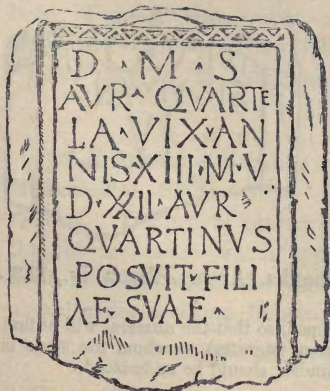 D · M · S
AVR · QVARTE
LA · VIX · AN
NIS · XIII · M · V
D · XXII · AVR
QVARTINVS
POSVIT · FILI
AE · SVAE ·